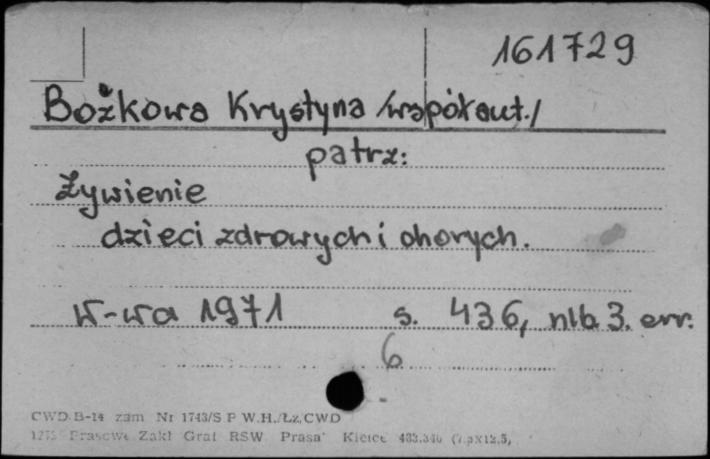 161729
Bożkowa Krystyna /współaut./
patrz:
Żywienie
dzieci zdrowych i chorych.
W-wa 1971 s. 436, nlb. 3. err.
6
CWD B-14 zam Nr 1743/S P W.H./Łz.CWD
Prasowe Zakł Graf RSW Prasa" Kielce